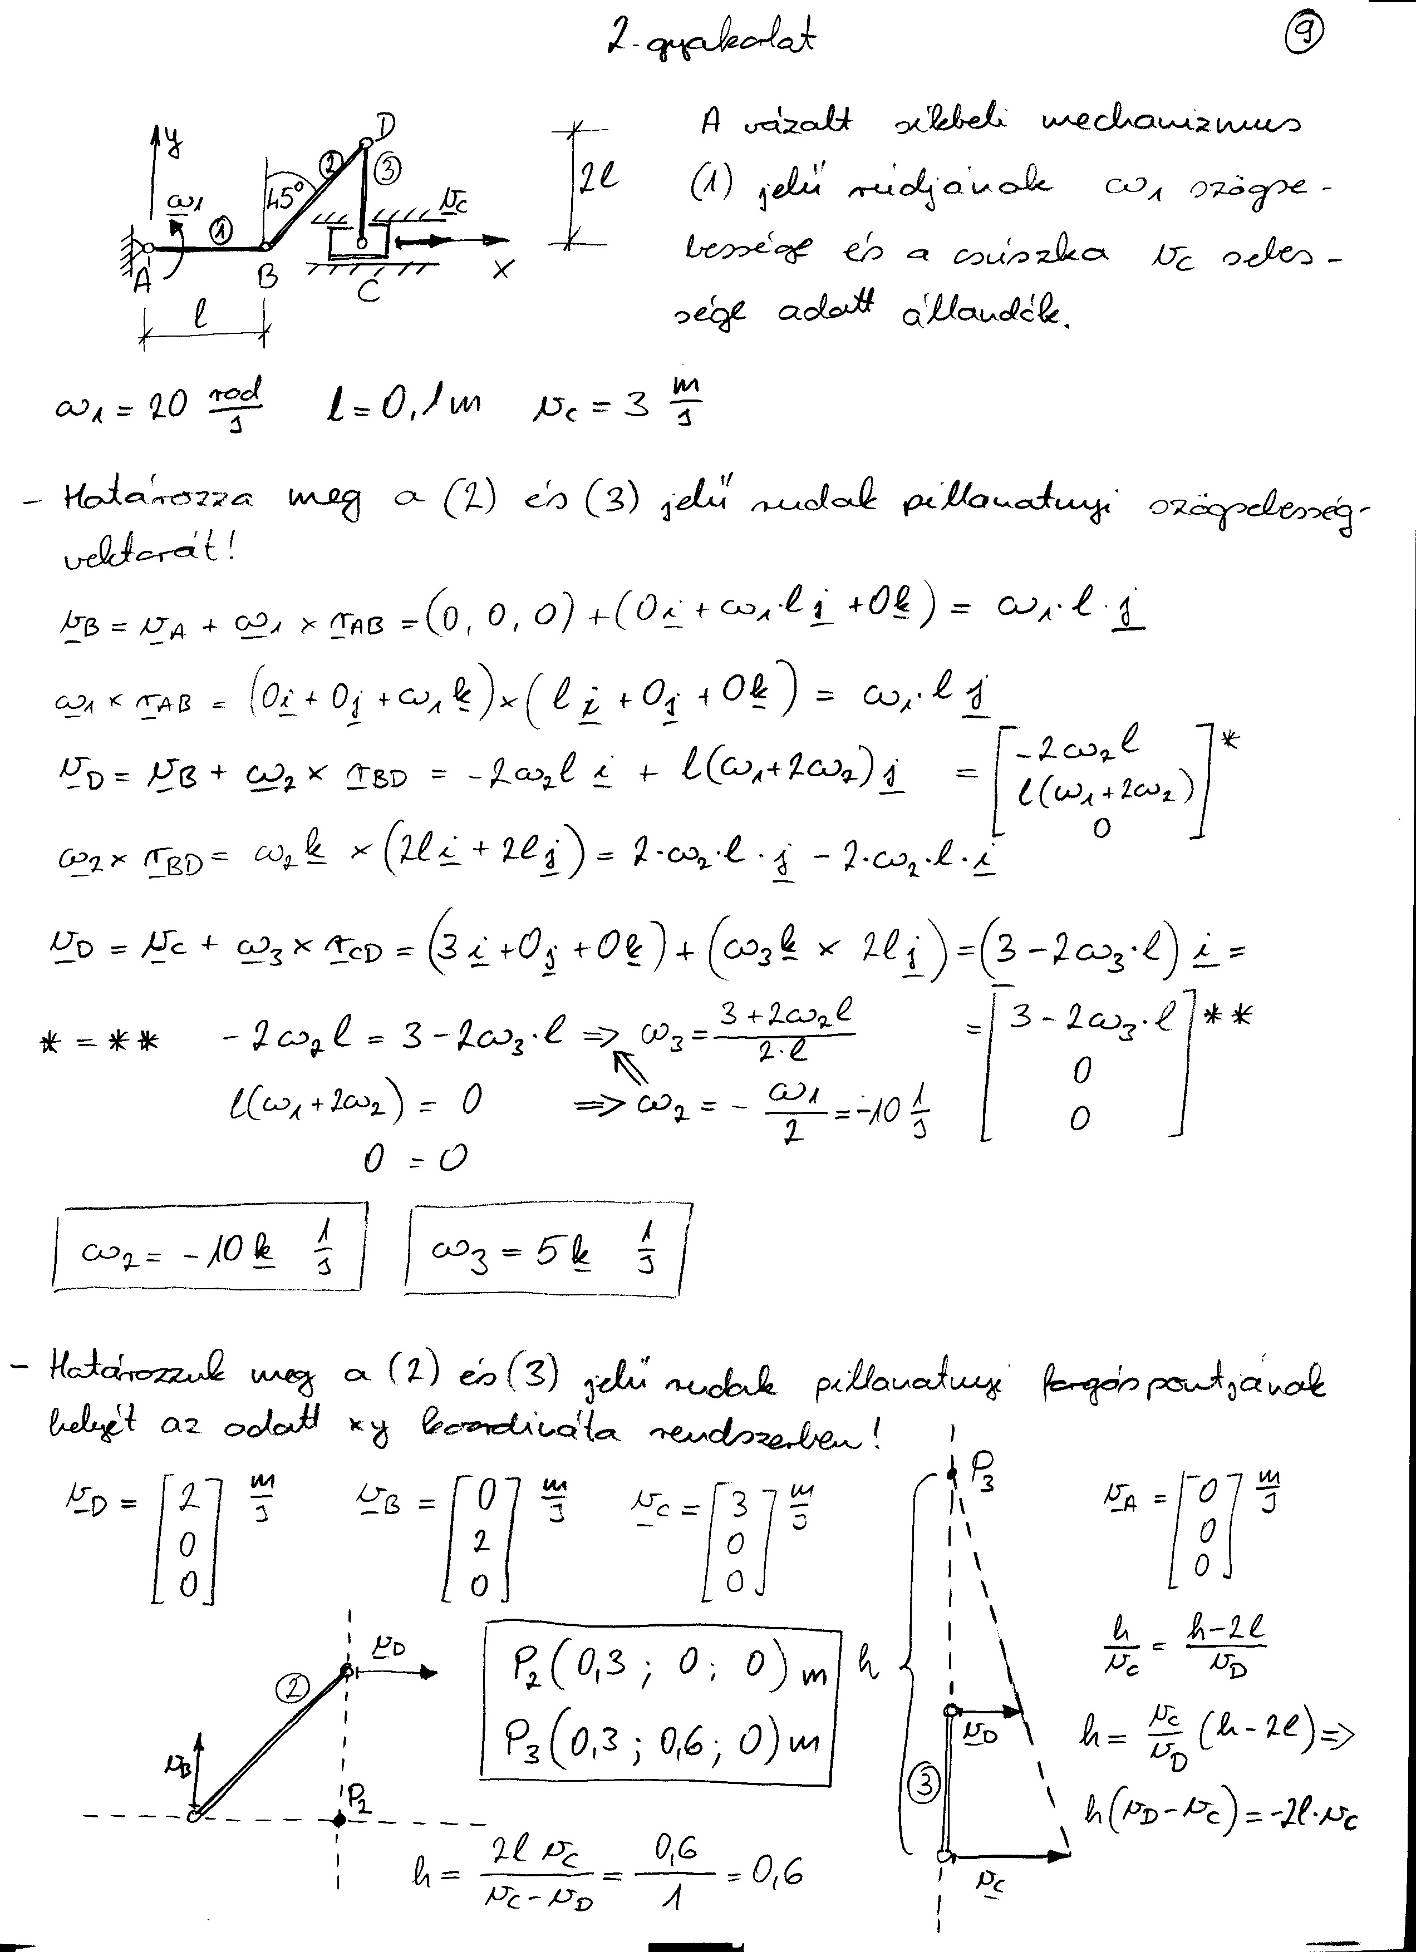 2. gyakorlat
9
y
D
2
3
45°
ω1
1
vC
A
B
C
x
l
2l
A vázolt síkbeli mechanizmus
(1) jelű rúdjának ω1 szögse-
bessége és a csúszka vC sebes-
sége adott állandók.
ω1 = 20 rad/s   l = 0,1 m   vC = 3 m/s
- Határozza meg a (2) és (3) jelű rudak pillanatnyi szögsebesség-
vektorát!
vB = vA + ω1 × rAB = (0, 0, 0) + (0i + ω1·l j + 0k) = ω1·l·j
ω1 × rAB = (0i + 0j + ω1 k) × (l i + 0j + 0k) = ω1·l j
vD = vB + ω2 × rBD = -2ω2l i + l(ω1+2ω2) j = [-2ω2l; l(ω1+2ω2); 0] *
ω2 × rBD = ω2 k × (2l i + 2l j) = 2·ω2·l·j - 2·ω2·l·i
vD = vC + ω3 × rCD = (3i + 0j + 0k) + (ω3 k × 2l j) = (3 - 2ω3·l) i =
* = **   -2ω2l = 3 - 2ω3·l ⇒ ω3 = (3+2ω2l)/(2·l)   = [3 - 2ω3·l; 0; 0] **
l(ω1+2ω2) = 0 ⇒ ω2 = - ω1/2 = -10 1/s
0 = 0
ω2 = -10 k 1/s   ω3 = 5 k 1/s
- Határozzuk meg a (2) és (3) jelű rudak pillanatnyi forgáspontjának
helyét az adott xy koordináta rendszerben!
vD = [2; 0; 0] m/s   vB = [0; 2; 0] m/s   vC = [3; 0; 0] m/s   vA = [0; 0; 0] m/s
P3
h/vC = (h-2l)/vD
vD
2
P2 (0,3 ; 0 ; 0) m
h
P3 (0,3 ; 0,6 ; 0) m
vD
h = vC/vD (h - 2l) ⇒
vB
3
P2
h(vD - vC) = -2l·vC
h = 2l vC/(vC - vD) = 0,6/1 = 0,6
vC